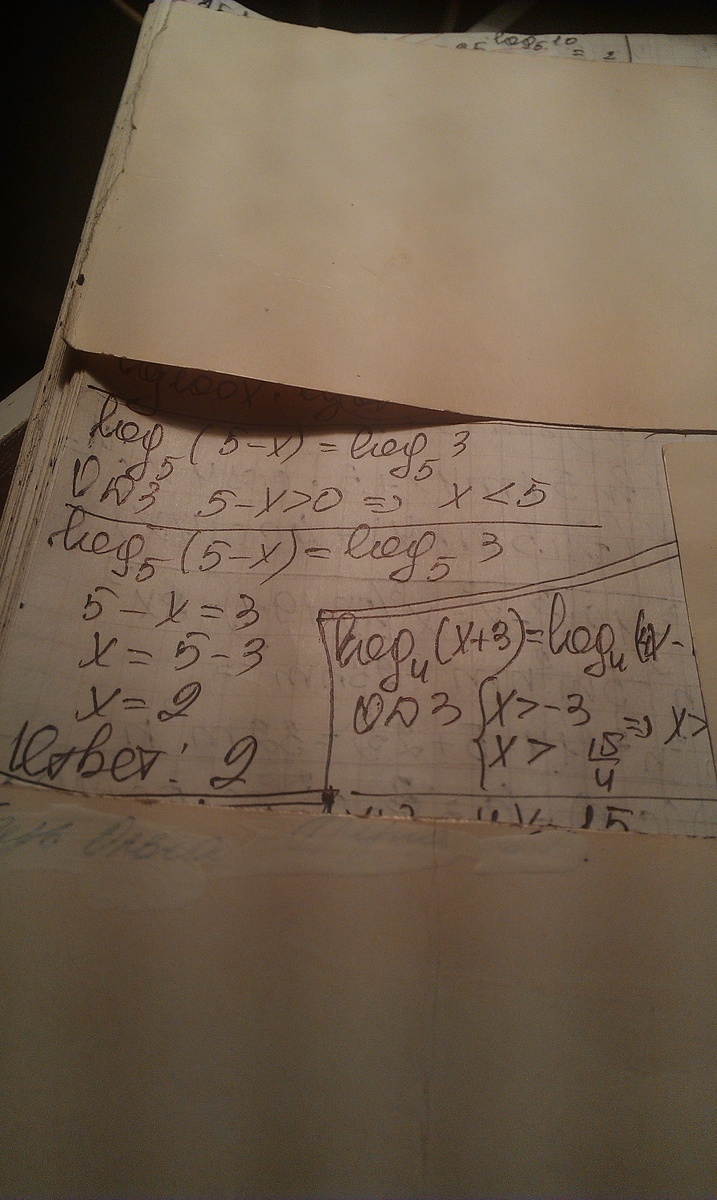 log₅10
log₅(5-x) = log₅3
ОДЗ 5-x>0 => x<5
log₅(5-x) = log₅3
5-x=3
x=5-3
x=2
Ответ: 2
log₄(x+3)=log₄(4x-
ОДЗ {x>-3
{x> 15/4 => x>